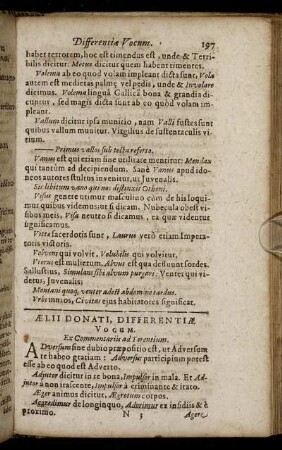 Differentiæ Vocum. 197
habet terrorem, hoc est timendus est, unde & Terri-
bilis dicitur. Metus dicitur quem habent timentes.
Volema ab eo quod volam impleant dicta sunt, Vola
autem est medietas palmæ vel pedis, unde & involare
dicimus. Volema linguâ Gallicâ bona & grandia di-
cuntur, sed magis dicta sunt ab eo quod volam im-
pleant.
Vallum dicitur ipsa munitio, nam Valli fustes sunt
quibus vallum munitur. Virgilius de sustentaculis vi-
tium.
Primus vallis suli tecta referto.
Vanus est qui etiam sine utilitate mentitur: Mendax
qui tantùm ad decipiendum. Sanè Vanus apud ido-
neos autores stultus invenitur, ut Juvenalis.
Sic libitum vano qui nos distinxit Othoni.
Visus genere utimur masculino cùm de his loqui-
mur quibus videmus, si dicam. Nubecula obest vi-
sibus meis. Visa neutro si dicamus, ea quæ videntur
significamus.
Vitta sacerdotis sunt, Laurus verò etiam Impera-
toris victoris.
Volvens qui volvit. Volubilis qui volvitur.
Uterus est mulierum, Alvus est qua defluunt sordes.
Sallustius, Simulans sibi alvum purgari: Venter qui vi-
detur, Juvenalis:
Montani quoq, venter adest abdomine tardus.
Urbs muros, Civitas ejus habitatores significat.
ÆLII DONATI, DIFFERENTIÆ
VOCUM.
Ex Commentariis ad Terentium.
Adversum sine dubio præpositio est, ut Adversum
te habeo gratiam: Adversus participium potest
esse ab eo quod est Adverto.
Adjutor dicitur in re bona, Impulsor in mala. Et Ad-
jutor à non irascente, Impulsor à criminante & irato.
Æger animos dicitur, Ægrotus corpos.
Aggredimur de longinquo, Adorimur ex insidiis & è
proximo. N 3 Agere